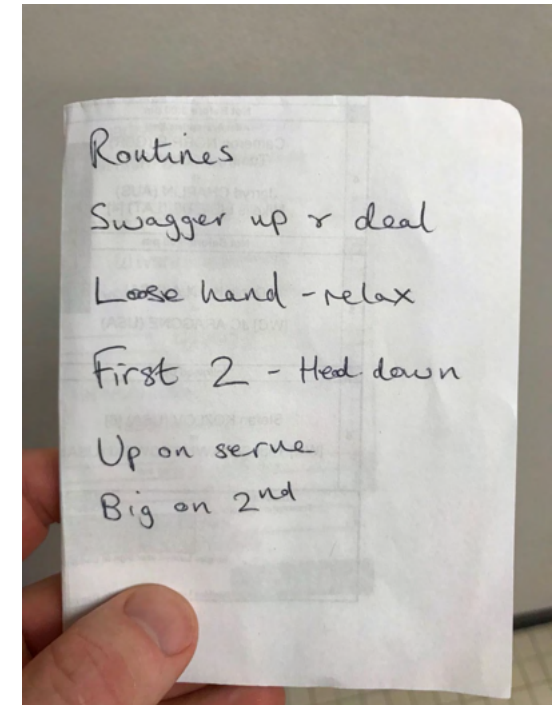 Routines
Swagger up & deal
Loose hand - relax
First 2 - Head down
Up on serve
Big on 2nd